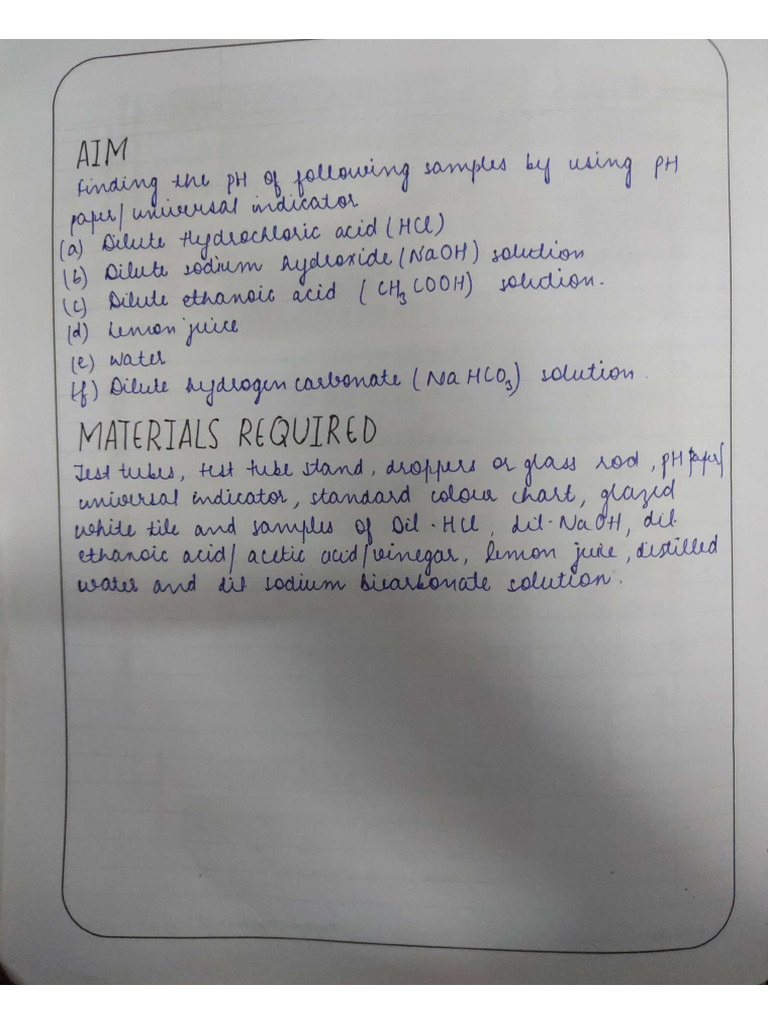 AIM
Finding the pH of following samples by using pH
paper/universal indicator
(a) Dilute Hydrochloric acid (HCl)
(b) Dilute sodium hydroxide (NaOH) solution
(c) Dilute ethanoic acid (CH₃COOH) solution.
(d) Lemon juice
(e) Water
(f) Dilute hydrogen carbonate (NaHCO₃) solution.
MATERIALS REQUIRED
Test tubes, test tube stand, droppers or glass rod, pH paper/
universal indicator, standard colour chart, glazed
white tile and samples of Dil. HCl, dil. NaOH, dil.
ethanoic acid/acetic acid/vinegar, lemon juice, distilled
water and dil sodium bicarbonate solution.